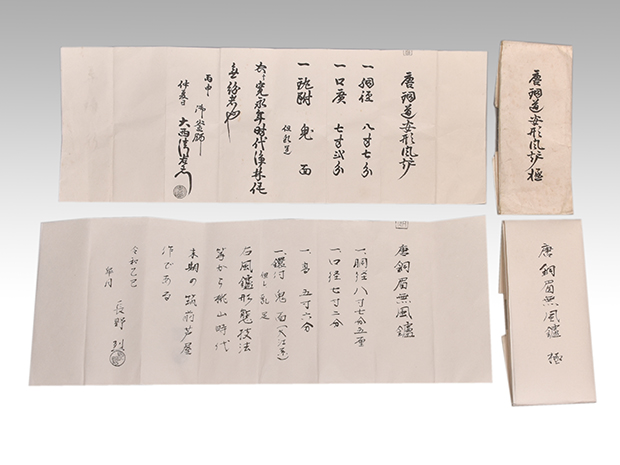 唐銅道安形風炉
一 胴径 八寸七分
一 口廣 七寸弐分
一 鐶附 鬼面
但乳足
右ハ寛永年時代浄林作
無紛者也
丙申 御釜師
仲春日 大西清右衛門
唐銅道安形風炉 極
唐銅眉無風鑪
一、胴径八寸七分五厘
一、口径七寸二分
一、高 五寸六分
一、鐶付 鬼面
但し乳足
右風鑪形態技法
等から桃山時代
末期の筑前芦屋
作である
令和乙巳
卯月 長野 烈
唐銅眉無風鑪 極